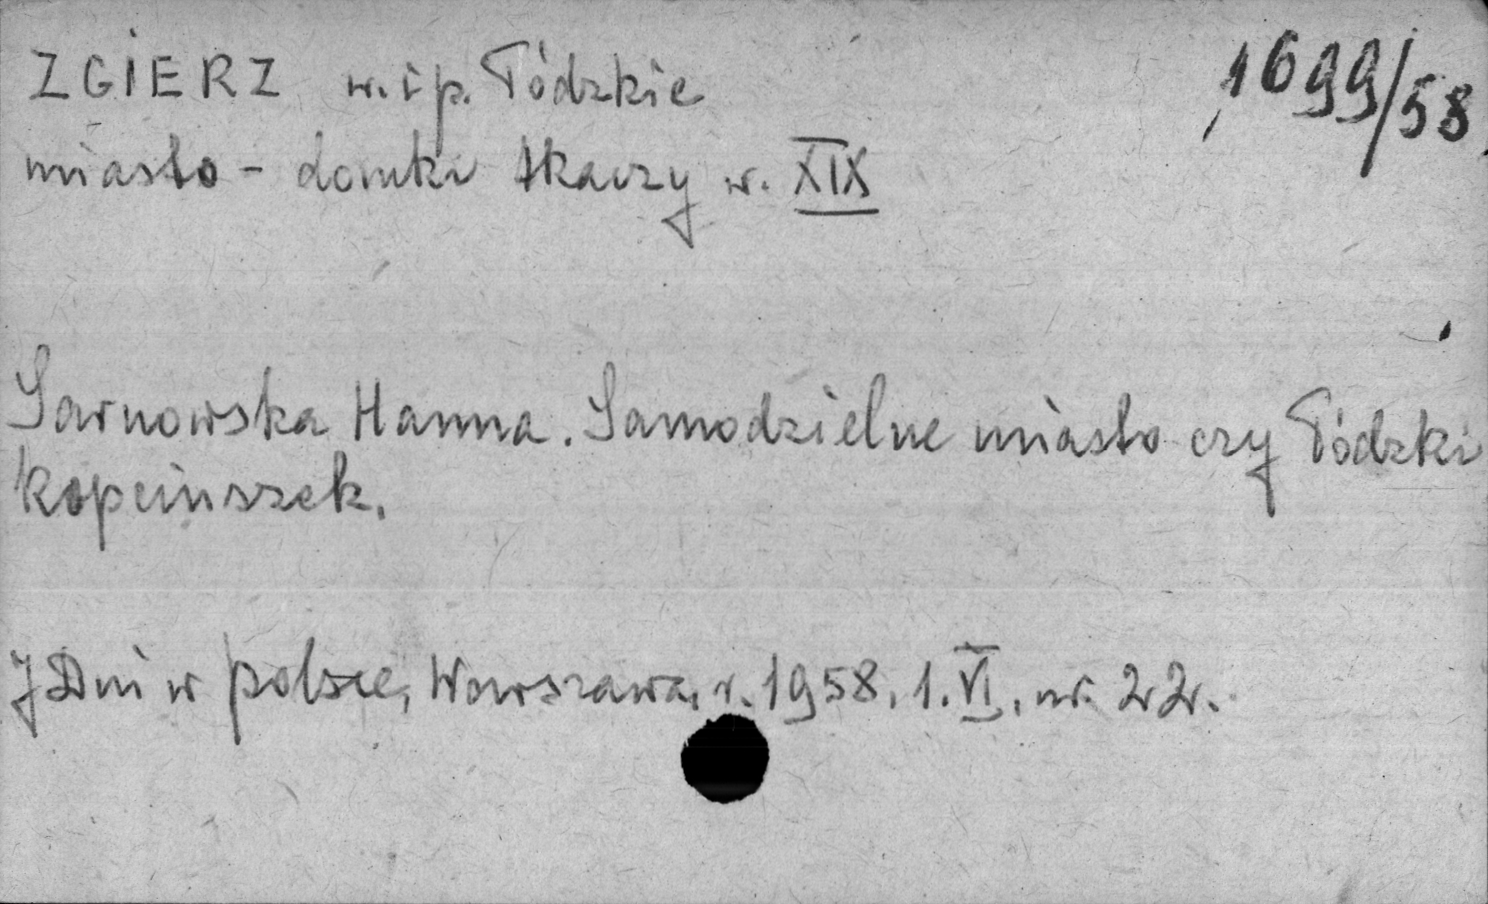 ZGIERZ w. i p. Łódzkie 1699/58
miasto - domki tkaczy w. XIX
Sarnowska Hanna. Samodzielne miasto czy Łódzki
kopciuszek.
7 Dni w polsce, Warszawa, r. 1958, 1. VI, nr 22.